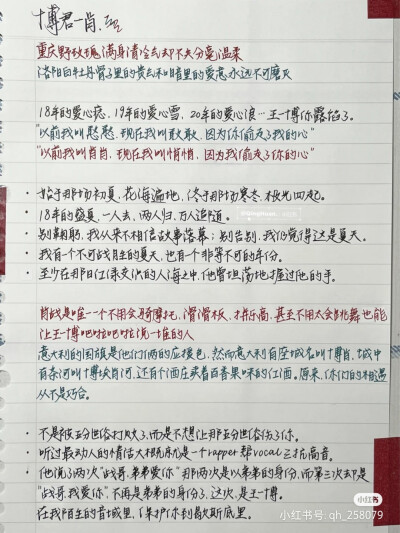 博君一肖.
重庆野玫瑰满身清冷却不失分毫温柔
洛阳白牡丹骨子里的贵去未喧嚣的爱意永远不可磨灭
18年的爱心痣,19年的爱心雪,20年的爱心浪…王一博你露馅了。
"以前我叫憨憨,现在我叫敢敢,因为你偷走了我的心"
"以前我叫肖肖,现在我叫悄悄,因为我偷走了你的心"
· 始于那场初夏,花海遍地,终于那场寒冬,极光四起。
· 18年的盛夏,一人去,两人归,万人追随。
· 别剧透,我从来不相信故事落幕;别告别,我仍觉得这是夏天。
· 我有个不可战胜的夏天,也有个非等不可的年份。
· 至少在那日红绿交织的人海之中,他曾坦荡地握过他的手。
肖战是唯一个不用会骑摩托,滑滑板,拼乐高,甚至不用太会跳舞也能
让王一博吧啦吧啦说一堆的人
意大利的国旗是他们俩的应援色,然而意大利有座城名叫博肖,城中
有条河叫博埃肖河,还有个酒庄卖着百香果味的红酒。原来,你们的相遇
从不是巧合。
· 不是被世俗打败了,而是不想让那世俗伤了你。
· 听过最动人的情话大概就是一个rapper帮vocal三抗高音。
· 他说了两次"战哥,弟弟爱你"那两次是以弟弟的身份,而第三次却是
"战哥,我爱你",不再是弟弟的身份了,这次,是王一博。
· 在我陌生的昔城里,保护你到歇斯底里。
小红书
小红书号: qh_258079